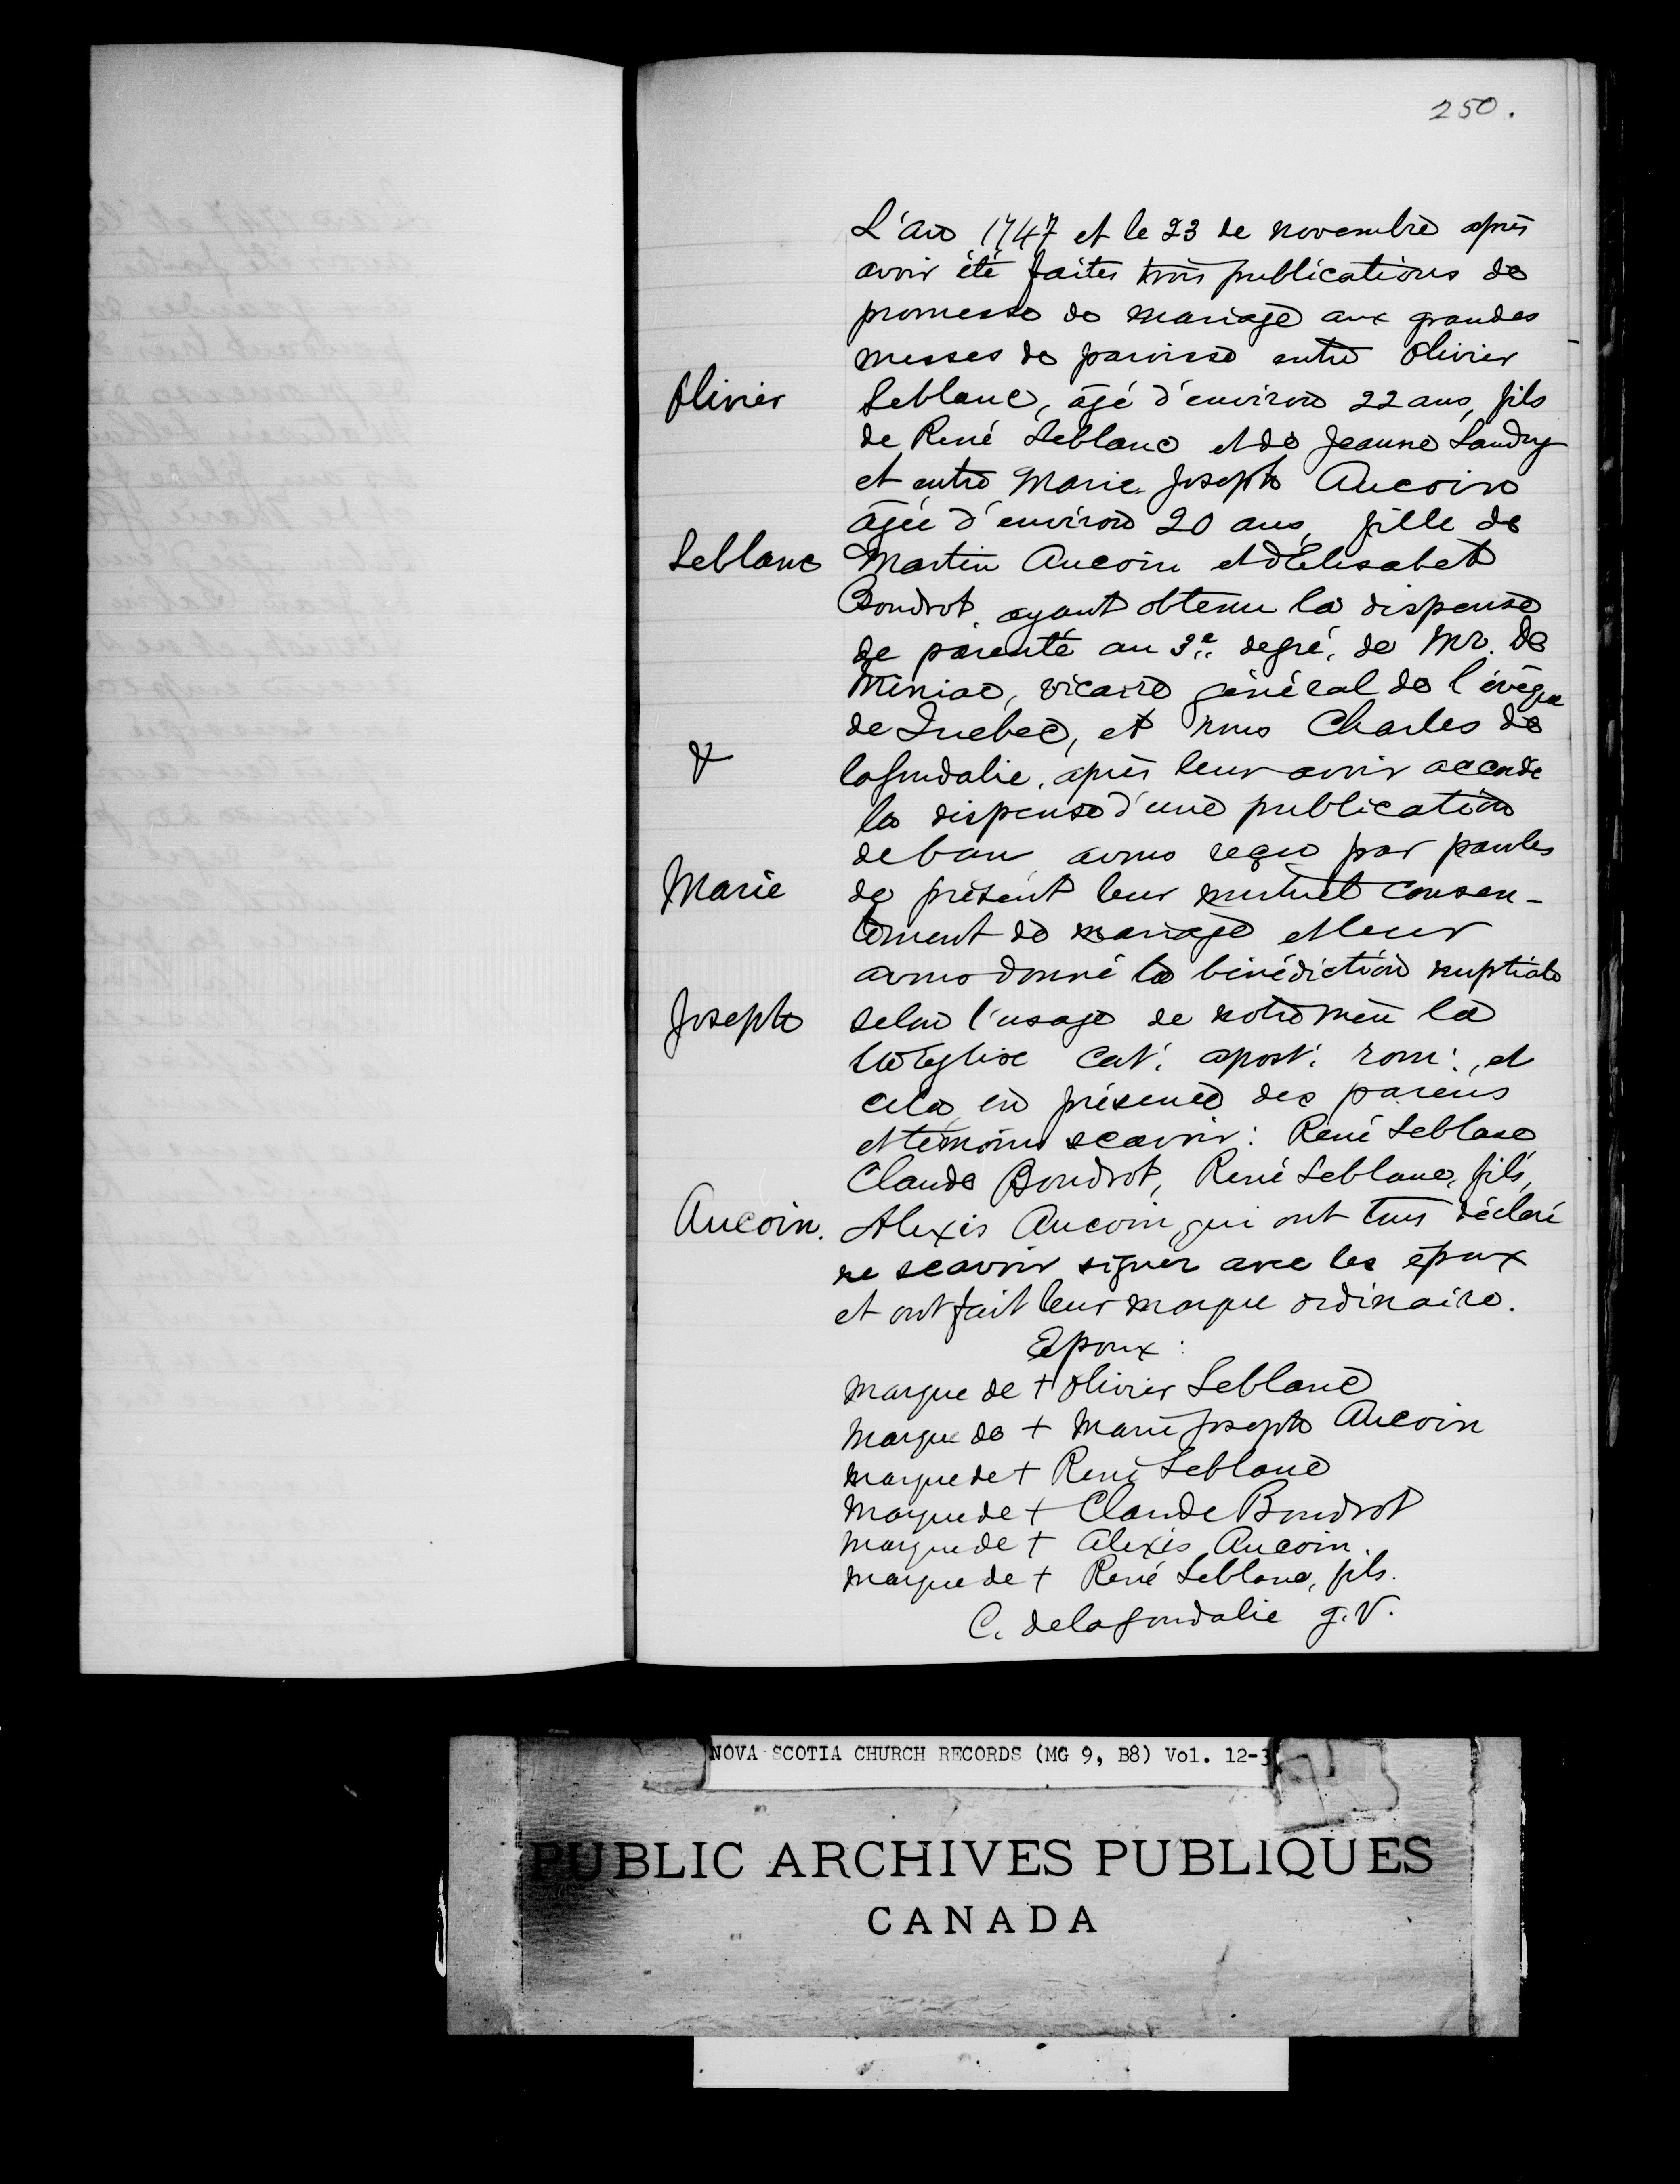 250.
L'an 1747 et le 23 de novembre après
avoir été faites trois publications de
promesse de mariage aux grandes
messes de paroisse entre Olivier
Olivier
Leblanc, âgé d'environ 22 ans, fils
de René Leblanc et de Jeanne Landry
et entre Marie Joseph Aucoin
âgée d'environ 20 ans, fille de
Leblanc
Martin Aucoin et d'Elisabeth
Boudrot, ayant obtenu la dispense
de parenté au 3e degré, de Mr. De
Miniac, vicaire général de l'évêque
de Quebec, et nous Charles de
&
lagoudalie, après leur avoir accordé
la dispense d'une publication
de ban avons reçu par paroles
Marie
de présent leur mutuel consen-
tement de mariage et leur
avons donné la bénédiction nuptiale
Joseph
selon l'usage de notre mère la
Ste Eglise cat: apost: rom:, et
cela en présence des parens
et témoins scavoir: René Leblanc
Claude Boudrot, René Leblanc, fils,
Aucoin.
Alexis Aucoin, qui ont tous déclaré
ne scavoir signer avec les époux
et ont fait leur marque ordinaire.
Epoux:
marque de + Olivier Leblanc
marque de + Marie Joseph Aucoin
marque de + René Leblanc
marque de + Claude Boudrot
marque de + Alexis Aucoin.
marque de + René Leblanc, fils.
C. delagoudalie g.V.
NOVA SCOTIA CHURCH RECORDS (MG 9, B8) Vol. 12-3
PUBLIC ARCHIVES PUBLIQUES
CANADA